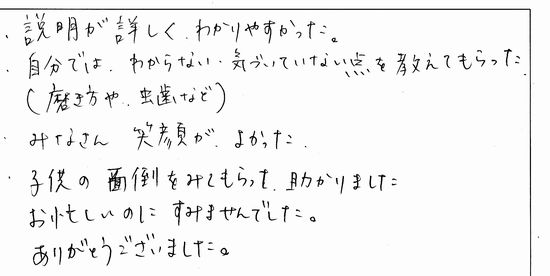 ・説明が詳しく、わかりやすかった。
・自分では、わからない・気づいていない点を教えてもらった
(磨き方や、虫歯など)
・みなさん 笑顔が、よかった。
・子供の面倒をみてもらって、助かりました
お忙しいのに すみませんでした。
ありがとうございました。